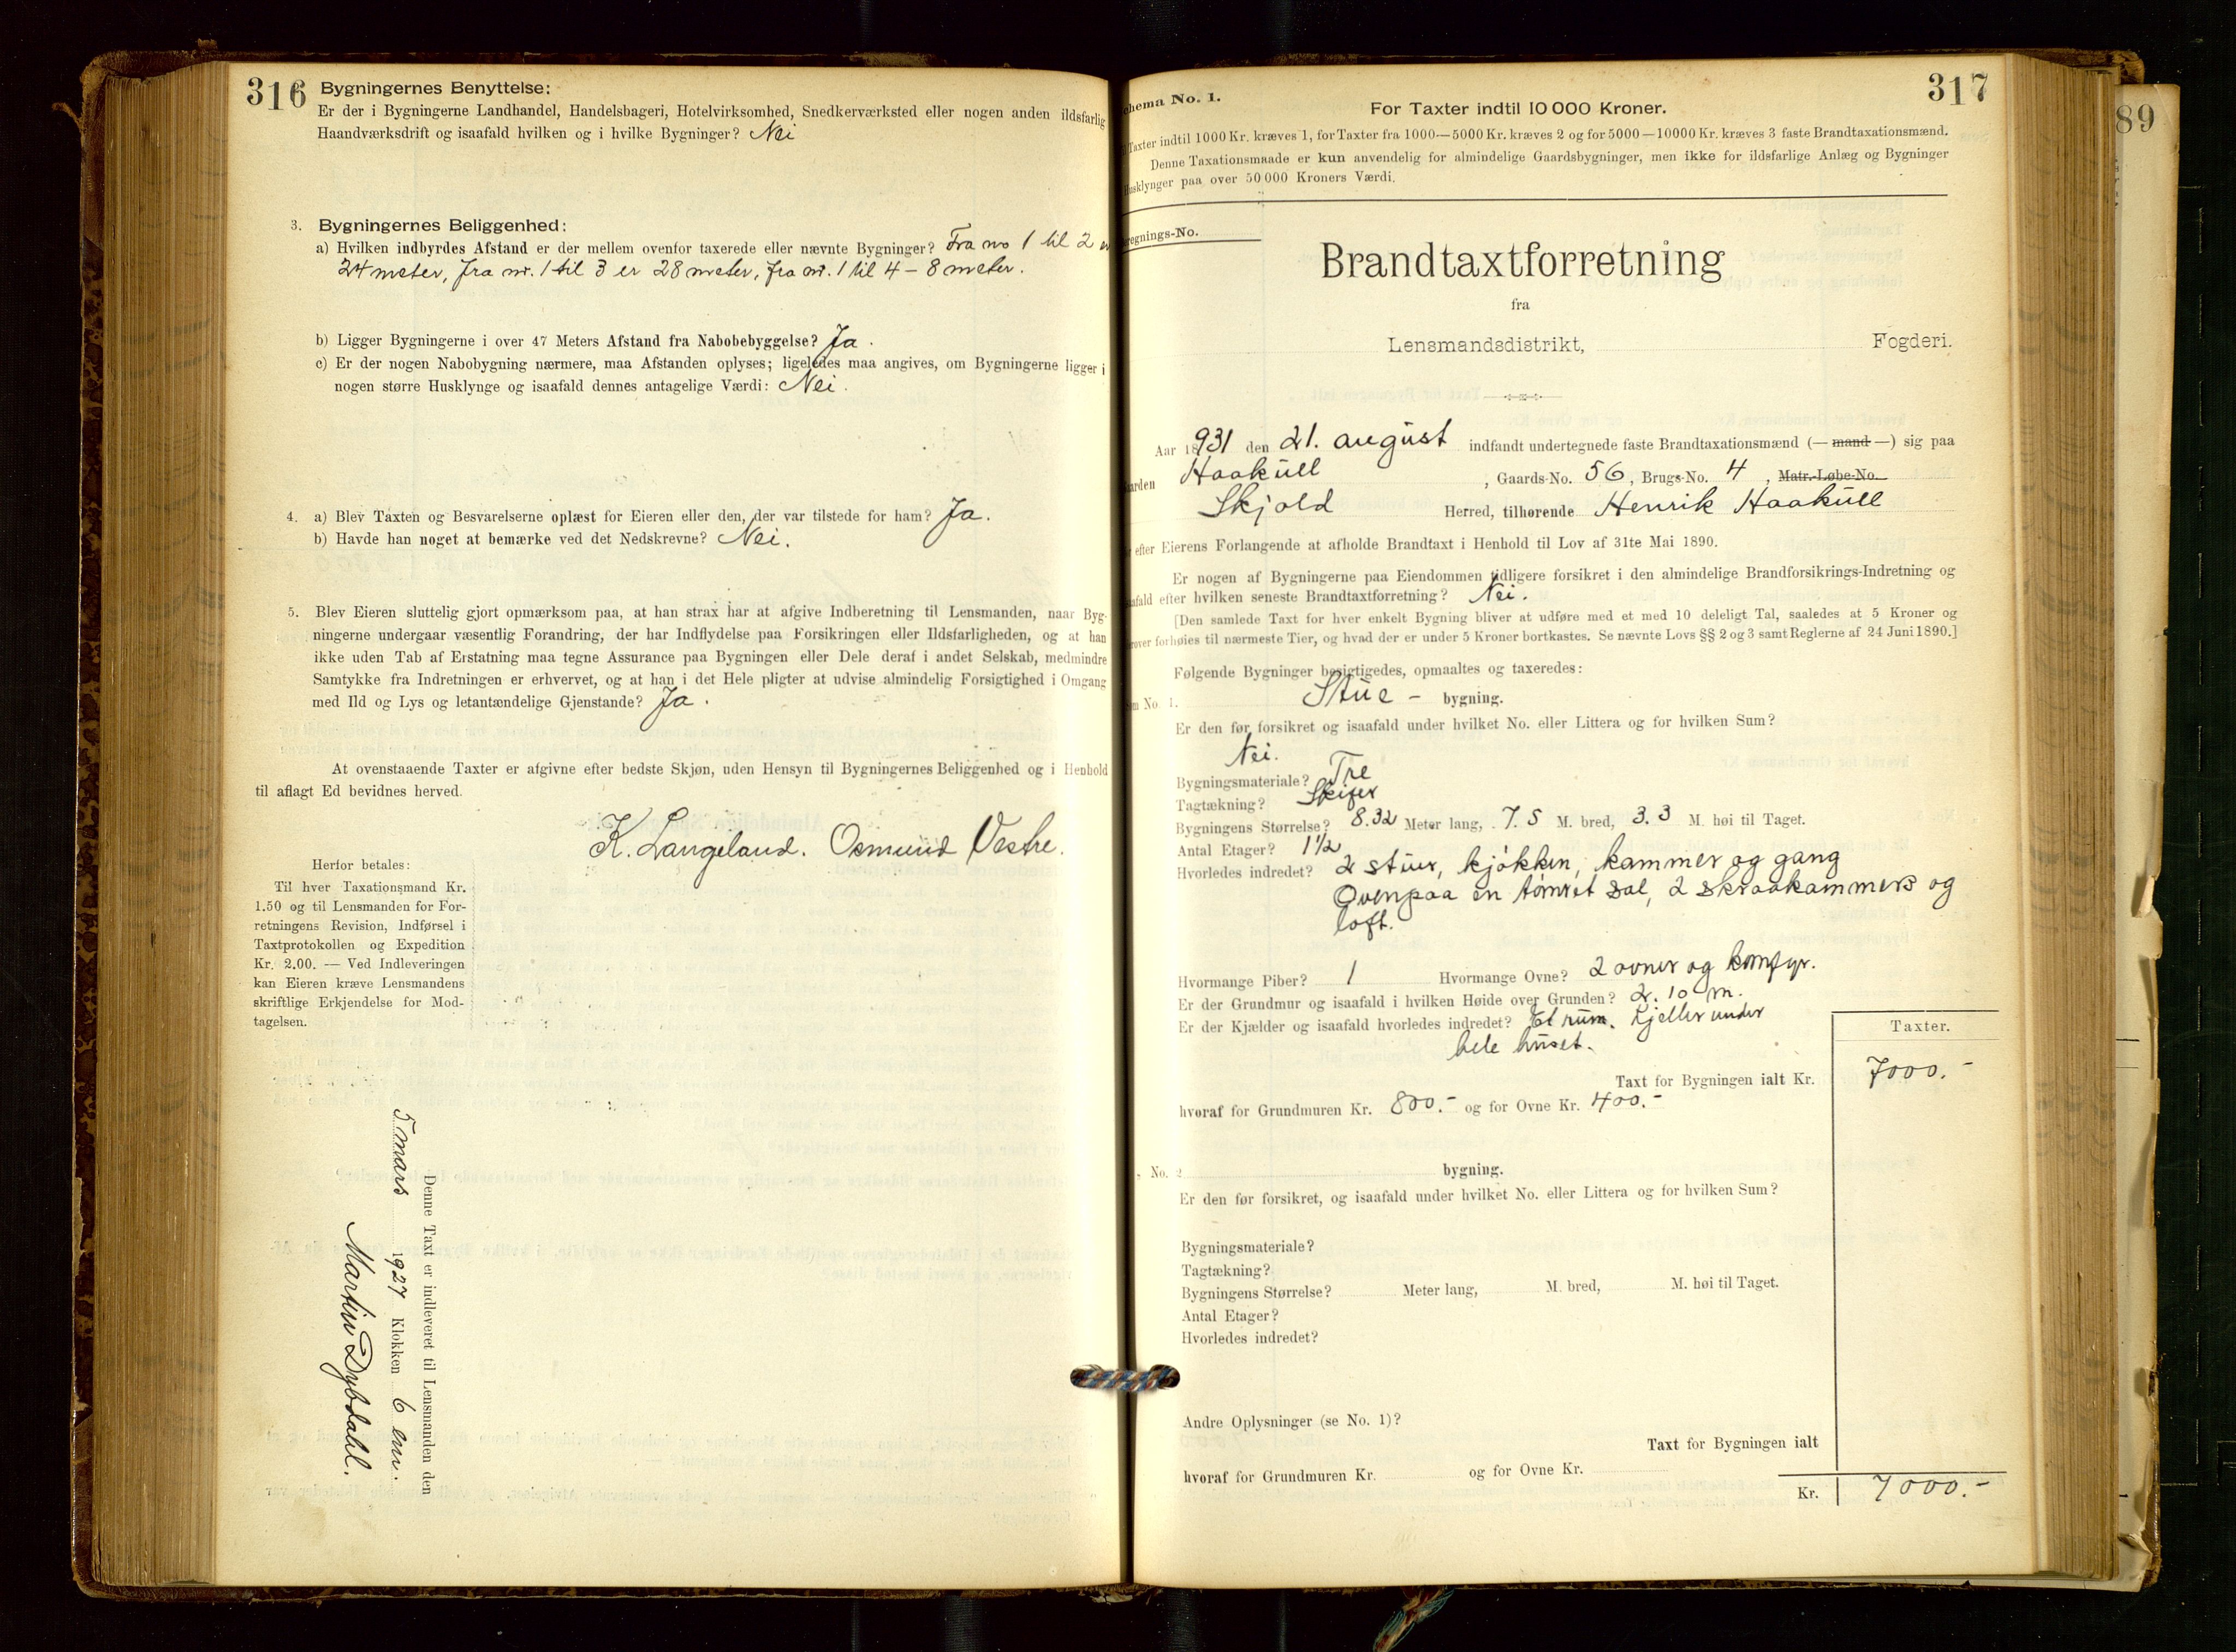 316
Bygningernes Benyttelse:
Er der i Bygningerne Landhandel, Handelsbageri, Hotelvirksomhed, Snedkerværksted eller nogen anden ildsfarlig
Haandværksdrift og isaafald hvilken og i hvilke Bygninger? Nei
3. Bygningernes Beliggenhed:
a) Hvilken indbyrdes Afstand er der mellem ovenfor taxerede eller nævnte Bygninger? Fra no 1 til 2 er
24 meter, fra nr. 1 til 3 er 28 meter, fra nr. 1 til 4 – 8 meter.
b) Ligger Bygningerne i over 47 Meters Afstand fra Nabobebyggelse? Ja.
c) Er der nogen Nabobygning nærmere, maa Afstanden oplyses; ligeledes maa angives, om Bygningerne ligger i
nogen større Husklynge og isaafald dennes antagelige Værdi: Nei.
4. a) Blev Taxten og Besvarelserne oplæst for Eieren eller den, der var tilstede for ham? Ja.
b) Havde han noget at bemærke ved det Nedskrevne? Nei.
5. Blev Eieren sluttelig gjort opmærksom paa, at han strax har at afgive Indberetning til Lensmanden, naar Byg-
ningerne undergaar væsentlig Forandring, der har Indflydelse paa Forsikringen eller Ildsfarligheden, og at han
ikke uden Tab af Erstatning maa tegne Assurance paa Bygningen eller Dele deraf i andet Selskab, medmindre
Samtykke fra Indretningen er erhvervet, og at han i det Hele pligter at udvise almindelig Forsigtighed i Omgang
med Ild og Lys og letantændelige Gjenstande? Ja.
At ovenstaaende Taxter er afgivne efter bedste Skjøn, uden Hensyn til Bygningernes Beliggenhed og i Henhold
til aflagt Ed bevidnes herved.
K. Langeland. Osmund Vestre.
Herfor betales:
Til hver Taxationsmand Kr.
1.50 og til Lensmanden for For-
retningens Revision, Indførsel i
Taxtprotokollen og Expedition
Kr. 2.00. — Ved Indleveringen
kan Eieren kræve Lensmandens
skriftlige Erkjendelse for Mod-
tagelsen.
Denne Taxt er indleveret til Lensmanden den
5 mars 1927 Klokken 6 em.
Martin Dybdahl.
317
89
hema No. 1.
For Taxter indtil 10 000 Kroner.
Taxter indtil 1000 Kr. kræves 1, for Taxter fra 1000—5000 Kr. kræves 2 og for 5000—10000 Kr. kræves 3 faste Brandtaxationsmænd.
Denne Taxationsmaade er kun anvendelig for almindelige Gaardsbygninger, men ikke for ildsfarlige Anlæg og Bygninger
Husklynger paa over 50 000 Kroners Værdi.
regnings-No.
Brandtaxtforretning
fra
Lensmandsdistrikt, Fogderi.
Aar 1931 den 21. august indfandt undertegnede faste Brandtaxationsmænd (— mand —) sig paa
arden Haakull, Gaards-No. 56, Brugs-No. 4, Matr.-Løbe-No.
Skjold Herred, tilhørende Henrik Haakull
efter Eierens Forlangende at afholde Brandtaxt i Henhold til Lov af 31te Mai 1890.
Er nogen af Bygningerne paa Eiendommen tidligere forsikret i den almindelige Brandforsikrings-Indretning og
afald efter hvilken seneste Brandtaxtforretning? Nei.
[Den samlede Taxt for hver enkelt Bygning bliver at udføre med et med 10 deleligt Tal, saaledes at 5 Kroner og
rover forhøies til nærmeste Tier, og hvad der er under 5 Kroner bortkastes. Se nævnte Lovs §§ 2 og 3 samt Reglerne af 24 Juni 1890.]
Følgende Bygninger besigtigedes, opmaaltes og taxeredes:
m No. 1. Stue – bygning.
Er den før forsikret og isaafald under hvilket No. eller Littera og for hvilken Sum?
Nei.
Bygningsmateriale? Tre
Tagtækning? Skifer
Bygningens Størrelse? 8.32 Meter lang, 7.5 M. bred, 3.3 M. høi til Taget.
Antal Etager? 1½
Hvorledes indredet? 2 stuer, kjøkken, kammer og gang
Ovenpaa en tømret sal, 2 skraakammers og
loft.
Hvormange Piber? 1 Hvormange Ovne? 2 ovner og komfyr.
Er der Grundmur og isaafald i hvilken Høide over Grunden? 2.10 m.
Er der Kjælder og isaafald hvorledes indredet? Et rum. Kjeller under
hele huset.
Taxter.
Taxt for Bygningen ialt Kr. 7000.-
hvoraf for Grundmuren Kr. 800.- og for Ovne Kr. 400.-
No. 2 bygning.
Er den før forsikret, og isaafald under hvilket No. eller Littera og for hvilken Sum?
Bygningsmateriale?
Tagtækning?
Bygningens Størrelse? Meter lang, M. bred, M. høi til Taget.
Antal Etager?
Hvorledes indredet?
Andre Oplysninger (se No. 1)?
Taxt for Bygningen ialt
hvoraf for Grundmuren Kr. og for Ovne Kr.
Kr. 7000.-